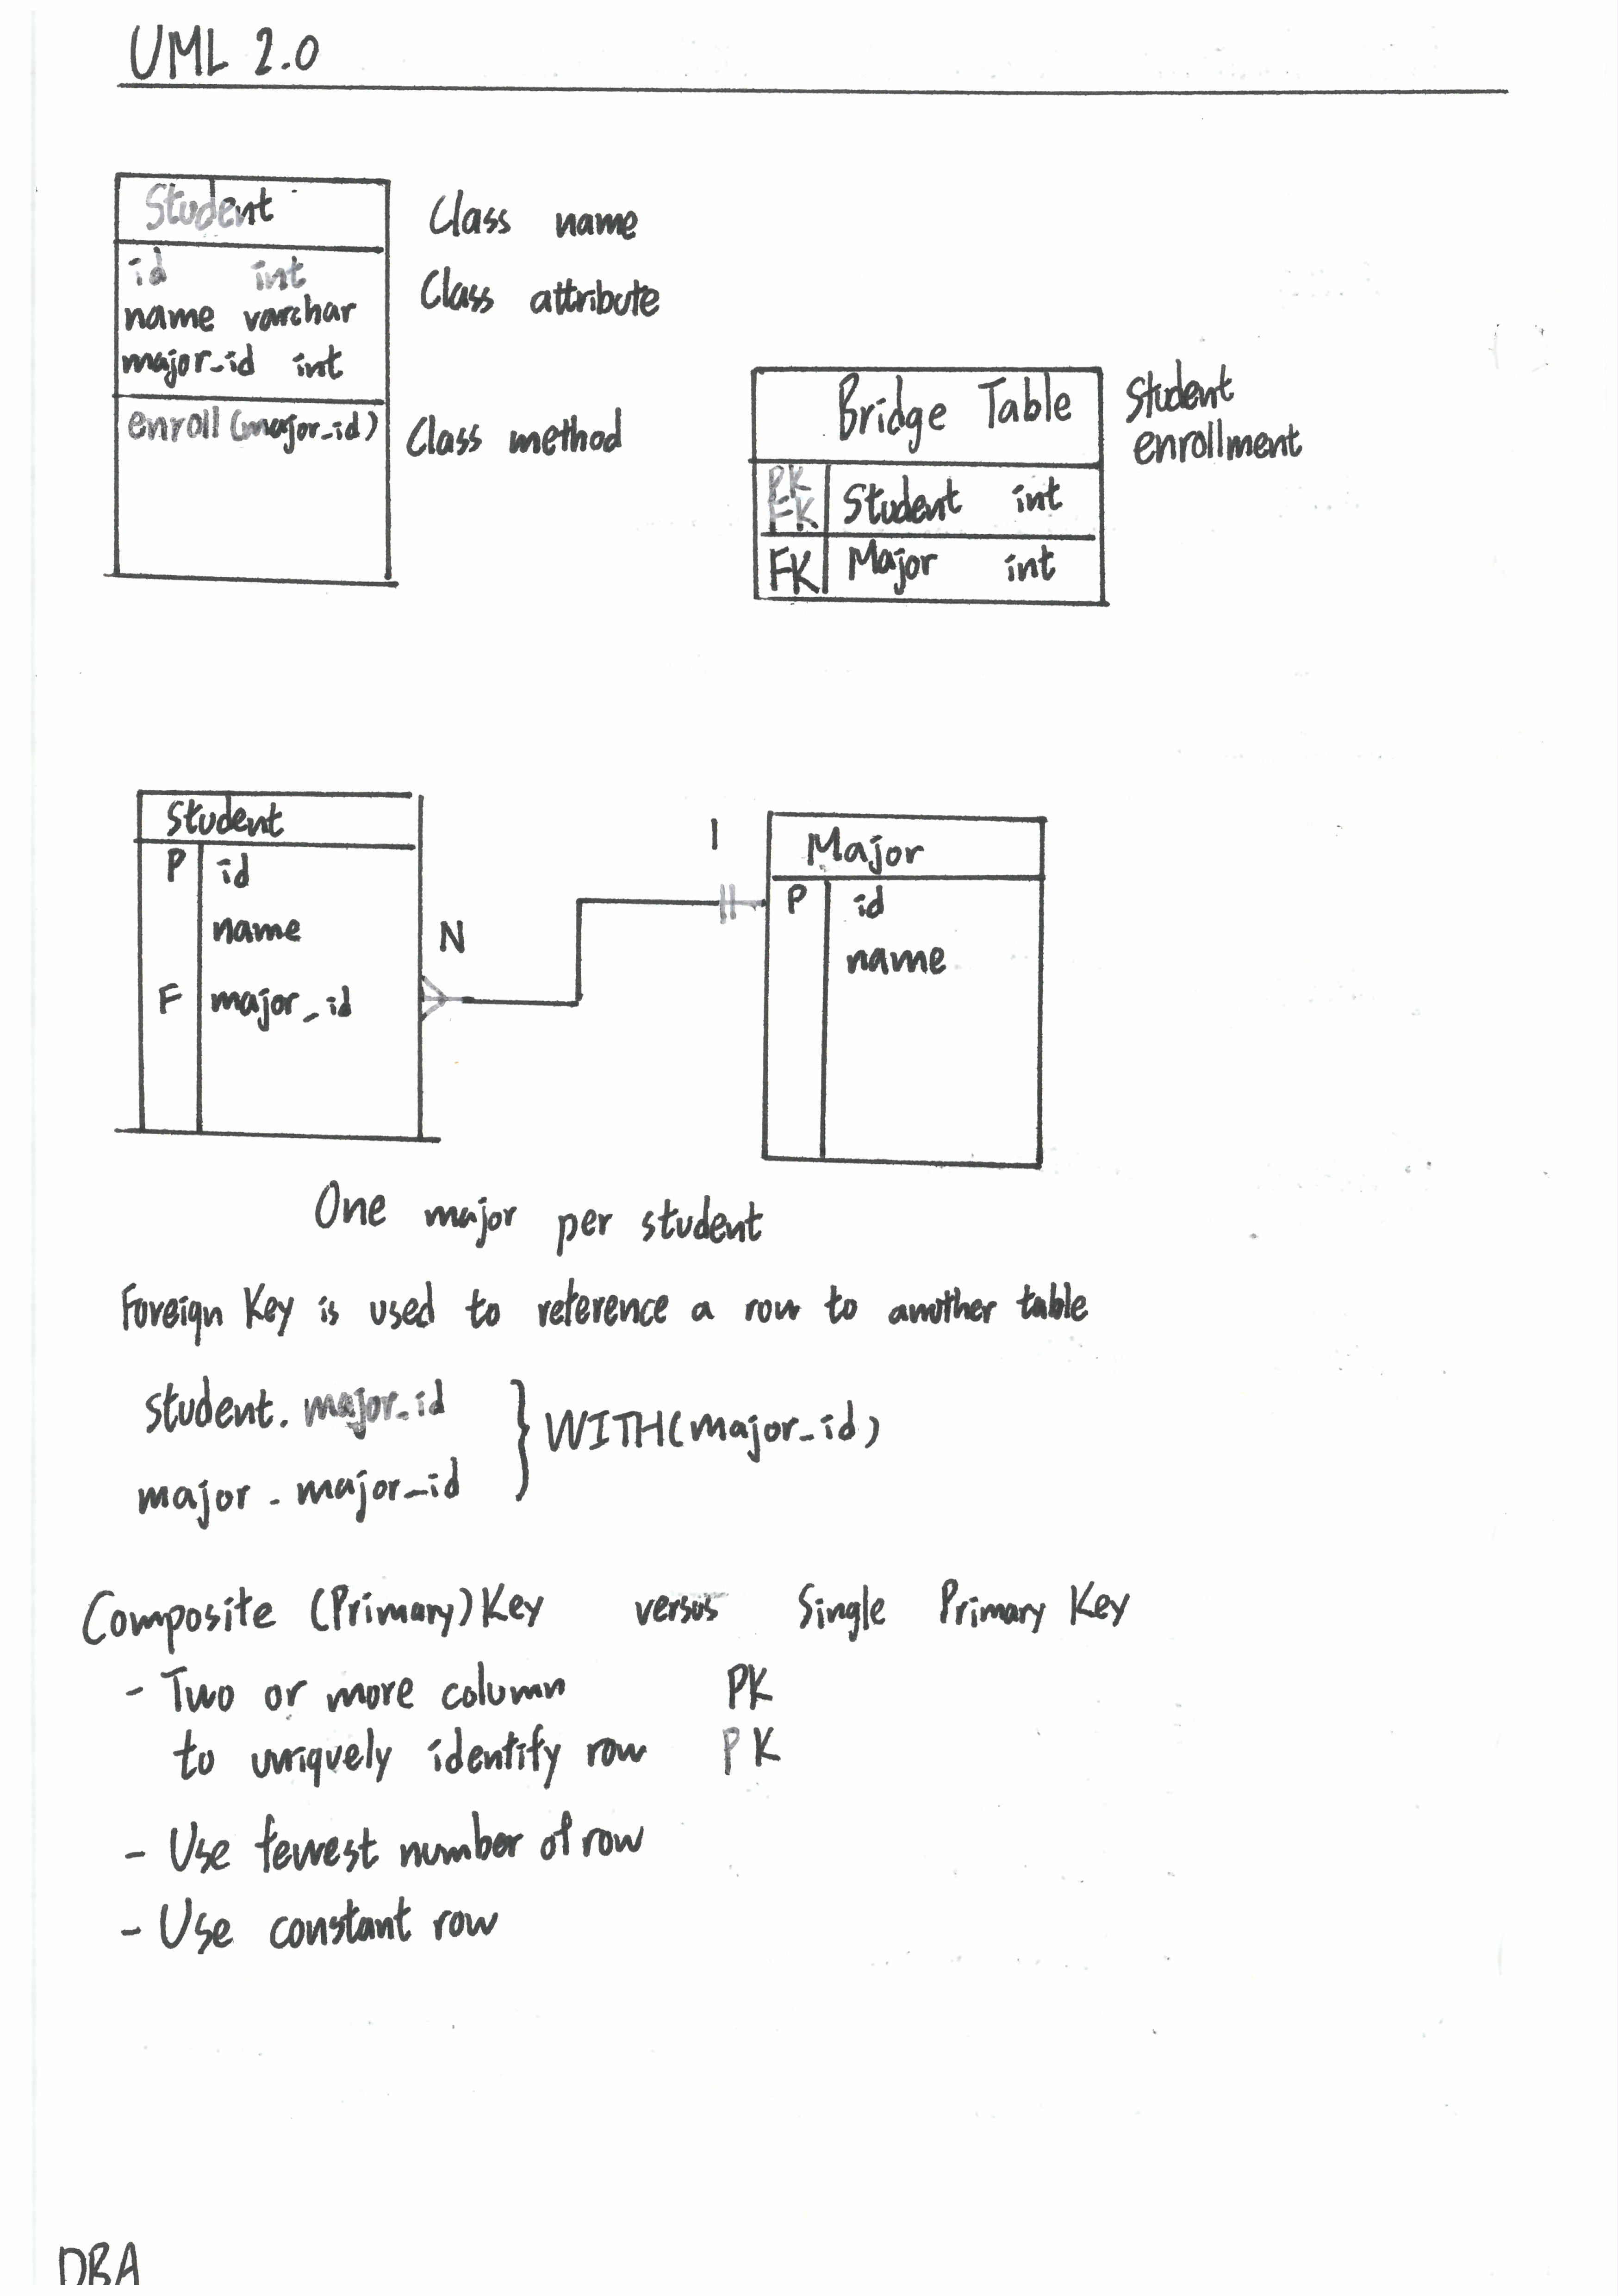 UML 2.0
Student
Class name
id int
name varchar
major_id int
Class attribute
enroll (major_id)
Class method
Bridge Table
Student
enrollment
PK
FK
Student int
FK Major int
Student
P id
name
F major_id
N
1
Major
P id
name
One major per student
Foreign Key is used to reference a row to another table
student. major_id
major . major_id
WITH(major_id)
Composite (Primary) Key versus Single Primary Key
- Two or more column PK
to uniquely identify row PK
- Use fewest number of row
- Use constant row
DBA